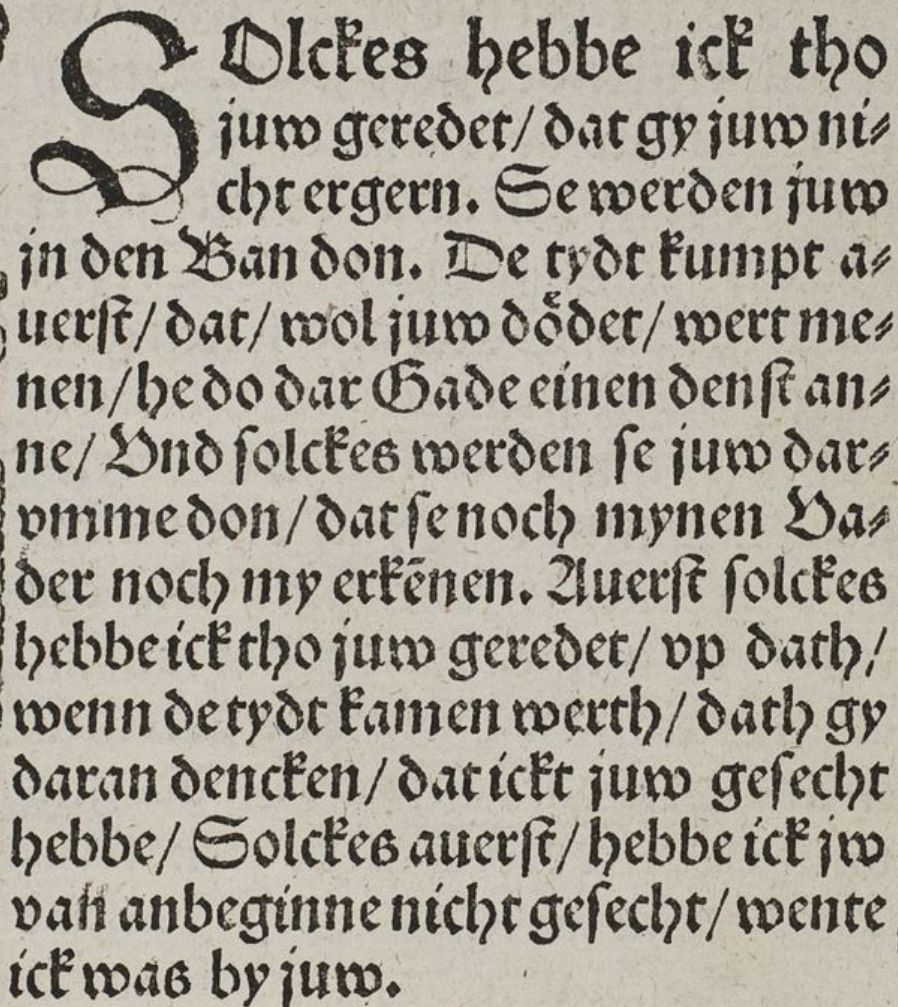 SOlckes hebbe ick tho
juw geredet/ dat gy juw ni⸗
cht ergern. Se werden juw
jn den Ban don. De tydt kumpt a⸗
uerst/ dat/ wol juw doͤdet/ wert me⸗
nen/ he do dar Gade einen denst an⸗
ne/ Vnd solckes werden se juw dar⸗
vmme don/ dat se noch mynen Va⸗
der noch my erkēnen. Auerst solckes
hebbe ick tho juw geredet/ vp dath/
wenn de tydt kamen werth/ dath gy
daran dencken/ dat ickt juw gesecht
hebbe/ Solckes auerst/ hebbe ick jw
van anbeginne nicht gesecht/ wente
ick was by juw.